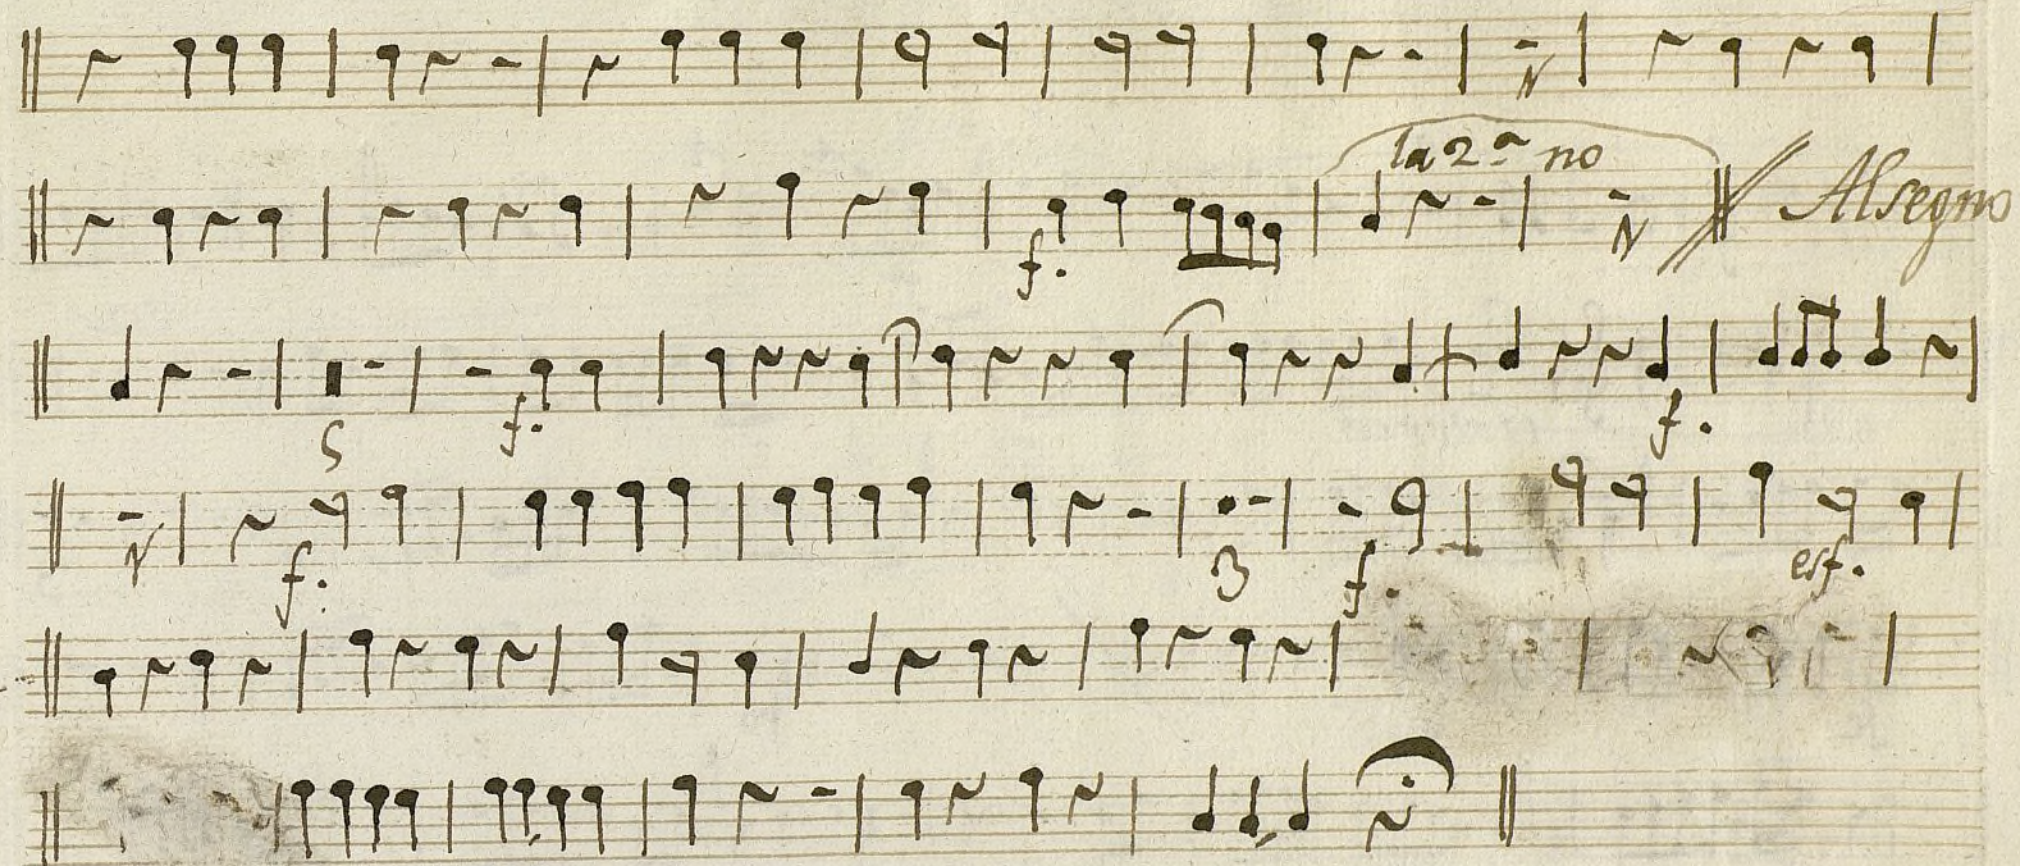 la 2ª no
Al segno
f.
5
f.
f.
f.
3
f.
esf.